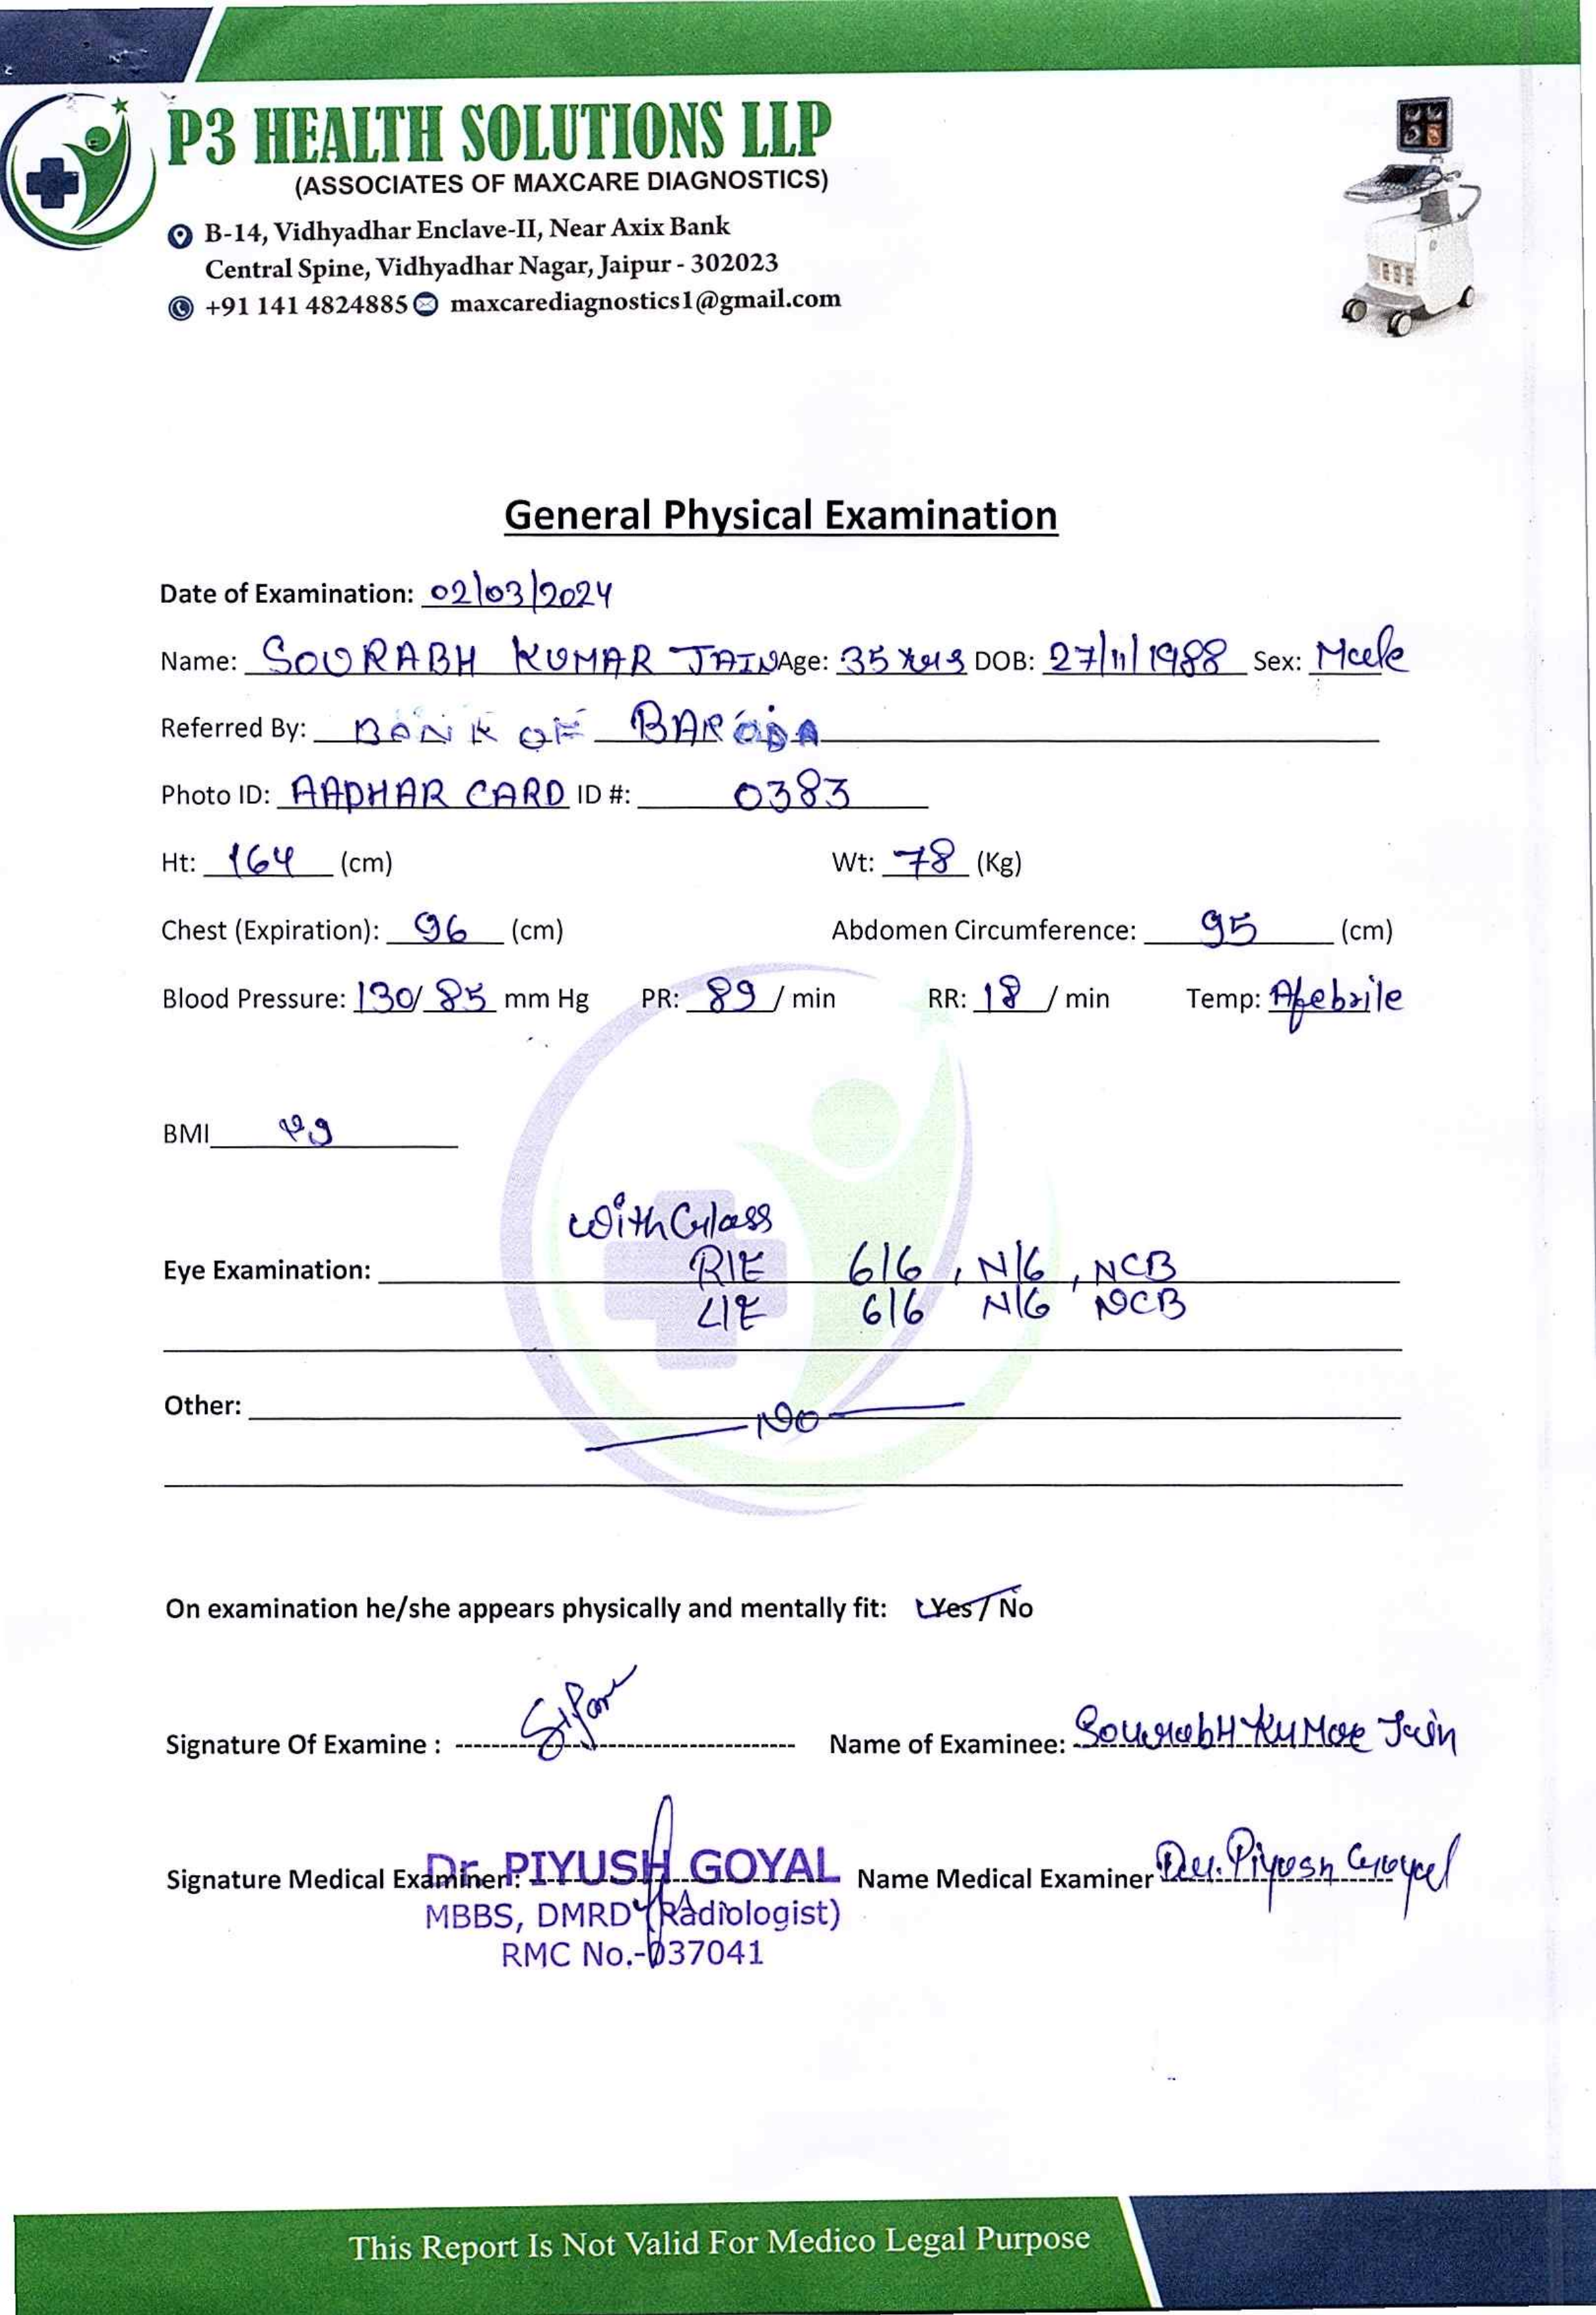 P3 HEALTH SOLUTIONS LLP
(ASSOCIATES OF MAXCARE DIAGNOSTICS)
B-14, Vidhyadhar Enclave-II, Near Axix Bank
Central Spine, Vidhyadhar Nagar, Jaipur - 302023
+91 141 4824885 maxcarediagnostics1@gmail.com
General Physical Examination
Date of Examination: 02/03/2024
Name: SOURABH KUMAR JAIN Age: 35 Yrs DOB: 27/11/1988 Sex: Male
Referred By: BANK OF BARODA
Photo ID: AADHAR CARD ID #: 0383
Ht: 164 (cm) Wt: 78 (Kg)
Chest (Expiration): 96 (cm) Abdomen Circumference: 95 (cm)
Blood Pressure: 130/85 mm Hg PR: 89 / min RR: 18 / min Temp: Afebrile
BMI 29
With Glass
Eye Examination: R/E 6/6, N/6, NCB
L/E 6/6 N/6 NCB
Other: No
On examination he/she appears physically and mentally fit: Yes / No
Signature Of Examine : Name of Examinee: Sourabh Kumar Jain
Signature Medical Examiner : Dr. PIYUSH GOYAL Name Medical Examiner Dr. Piyush Goyal
MBBS, DMRD (Radiologist)
RMC No.-037041
This Report Is Not Valid For Medico Legal Purpose